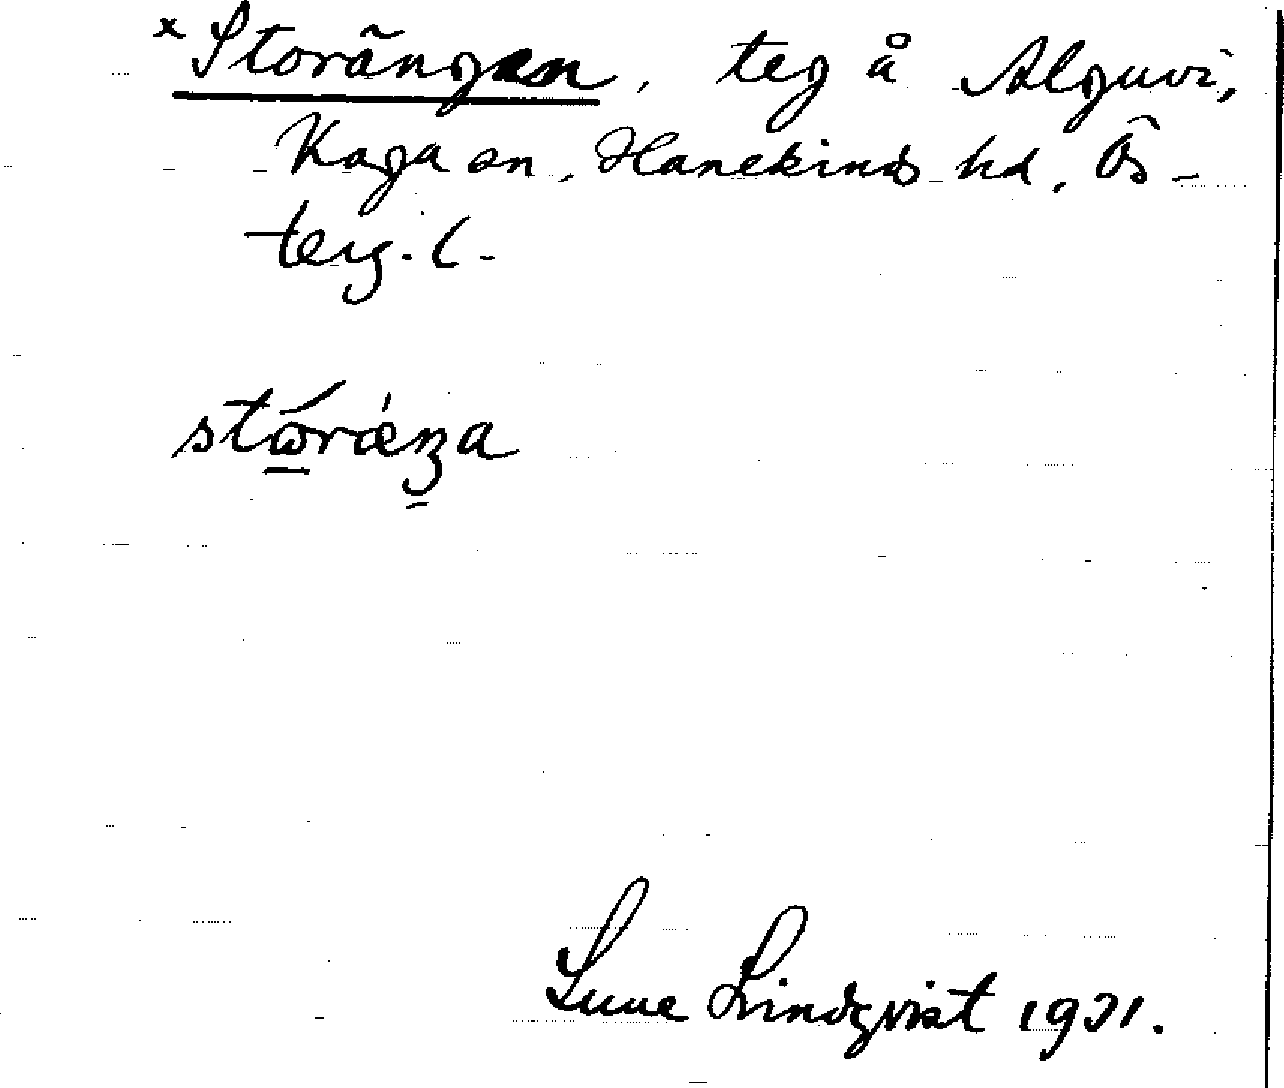 x Storängen, teg å Alguvi,
Kaga sn, Hanekinds hd, Ös-
terg. l.
stω̄́rǽŋa
Sune Lindqvist 1921.